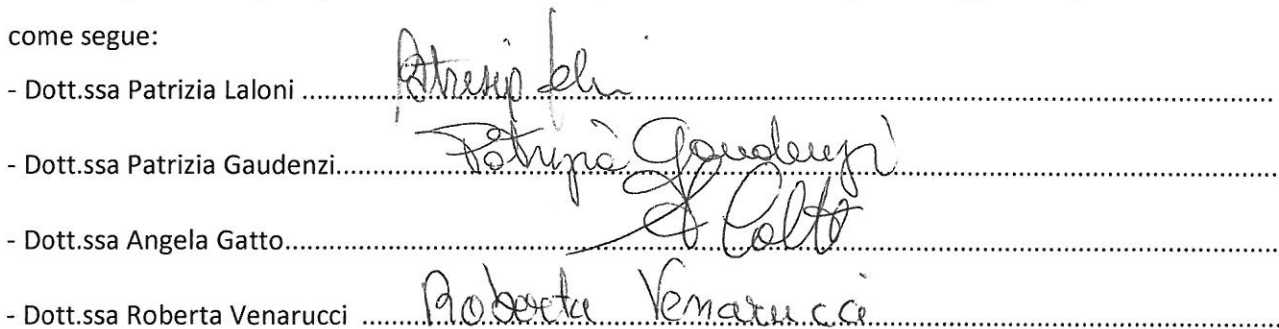 come segue:
- Dott.ssa Patrizia Laloni ........................ Patrizia Laloni
- Dott.ssa Patrizia Gaudenzi........................ Patrizia Gaudenzi
- Dott.ssa Angela Gatto........................
- Dott.ssa Roberta Venarucci ........................ Roberta Venarucci